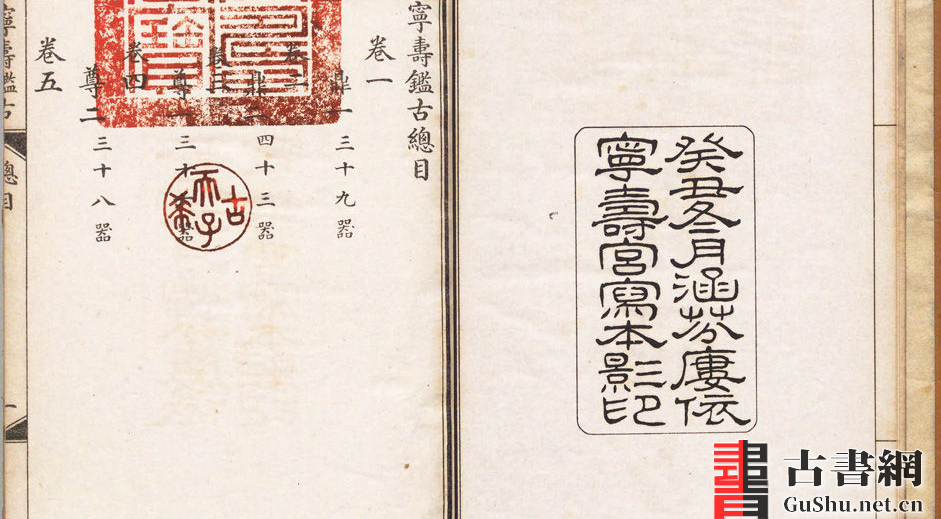 癸丑冬月涵芬廔依
寧壽宮寫本影印
寧壽鑑古總目
卷一
鼎一 三十九器
卷二
鼎二 四十三器
卷三
尊一 三十 器
卷四
尊二 三十八器
卷五
寧壽鑑古 總目 一
古希天子
古書網
GuShu.net.cn